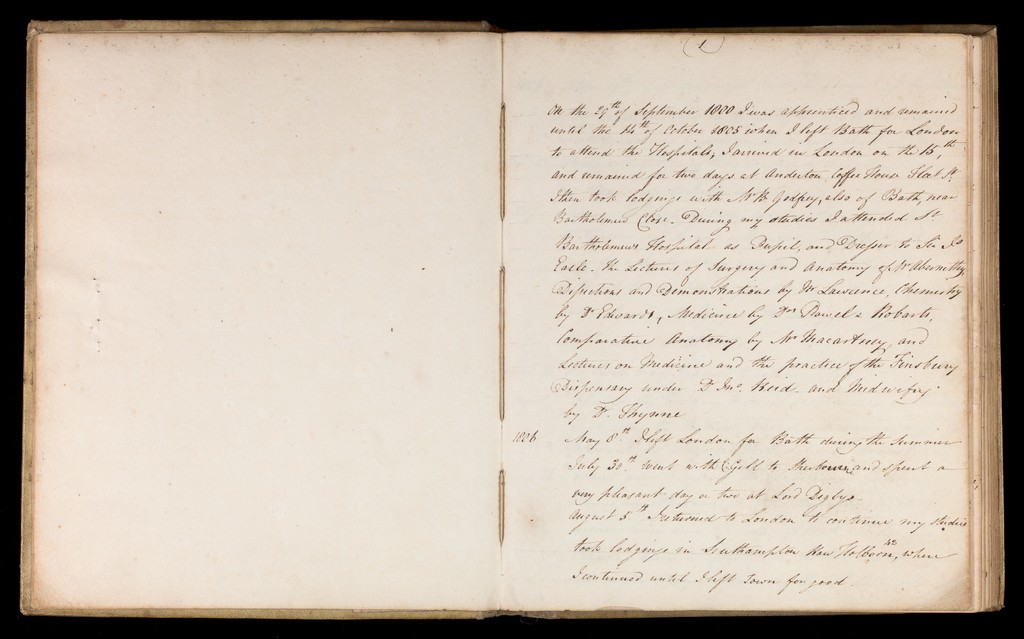 1
On the 29th of September 1800 I was apprenticed and remained
until the 14th of October 1805 when I left Bath for London
to attend the Hospitals, I arrived in London on the 15th,
and remained for two days at Anderton Coffee House Fleet St.
I then took lodgings with Mr. Godfrey, also of Bath, near
Bartholomew Close. During my studies I attended St.
Bartholomews Hospital as Pupil, and Dresser to Sir Js.
Earle. the Lectures of Surgery and Anatomy of Mr Abernethy,
Dissections and Demonstrations by Mr Lawrence, Chemistry
by Dr Edwards, Medicine by Drs Powel & Robarts,
Comparative Anatomy by Mr Macartney, and
Lectures on Medicine and the practice of the Finsbury
Dispensary under Dr Jno. Reid. and Midwifery
by Dr. Thynne
1806 May 8th. I left London for Bath during the Summer
July 30th. went with to Sherborne and spent a
very pleasant day or two at Lord Digbys.
August 5th I returned to London to continue my studies
took lodgings in Southampton Row Holborn, 42 where
I continued until I left Town for good.